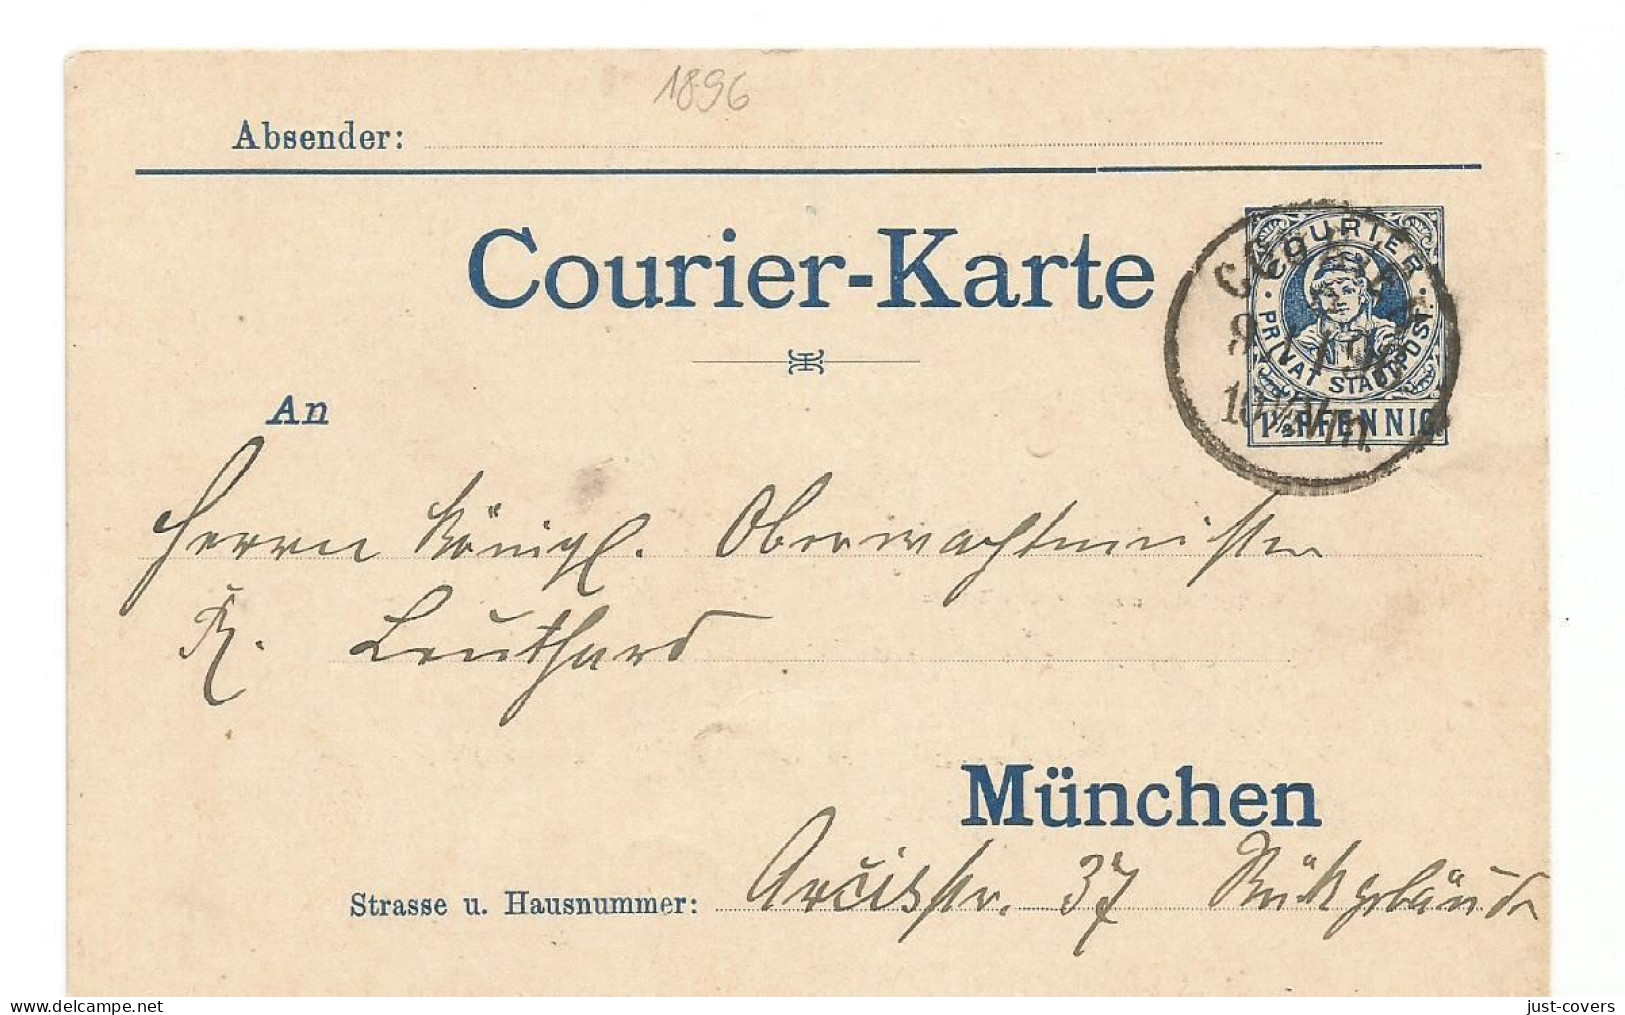 1896
Absender:
Courier-Karte
COURIER
PRIVAT STADTPOST
1½ PFENNIG.
An
Herrn Königl. Oberwachtmeister
K. Leuthard
München
Strasse u. Hausnummer: Arcisstr. 37 Rückgebäude
delcampe.net
just-covers